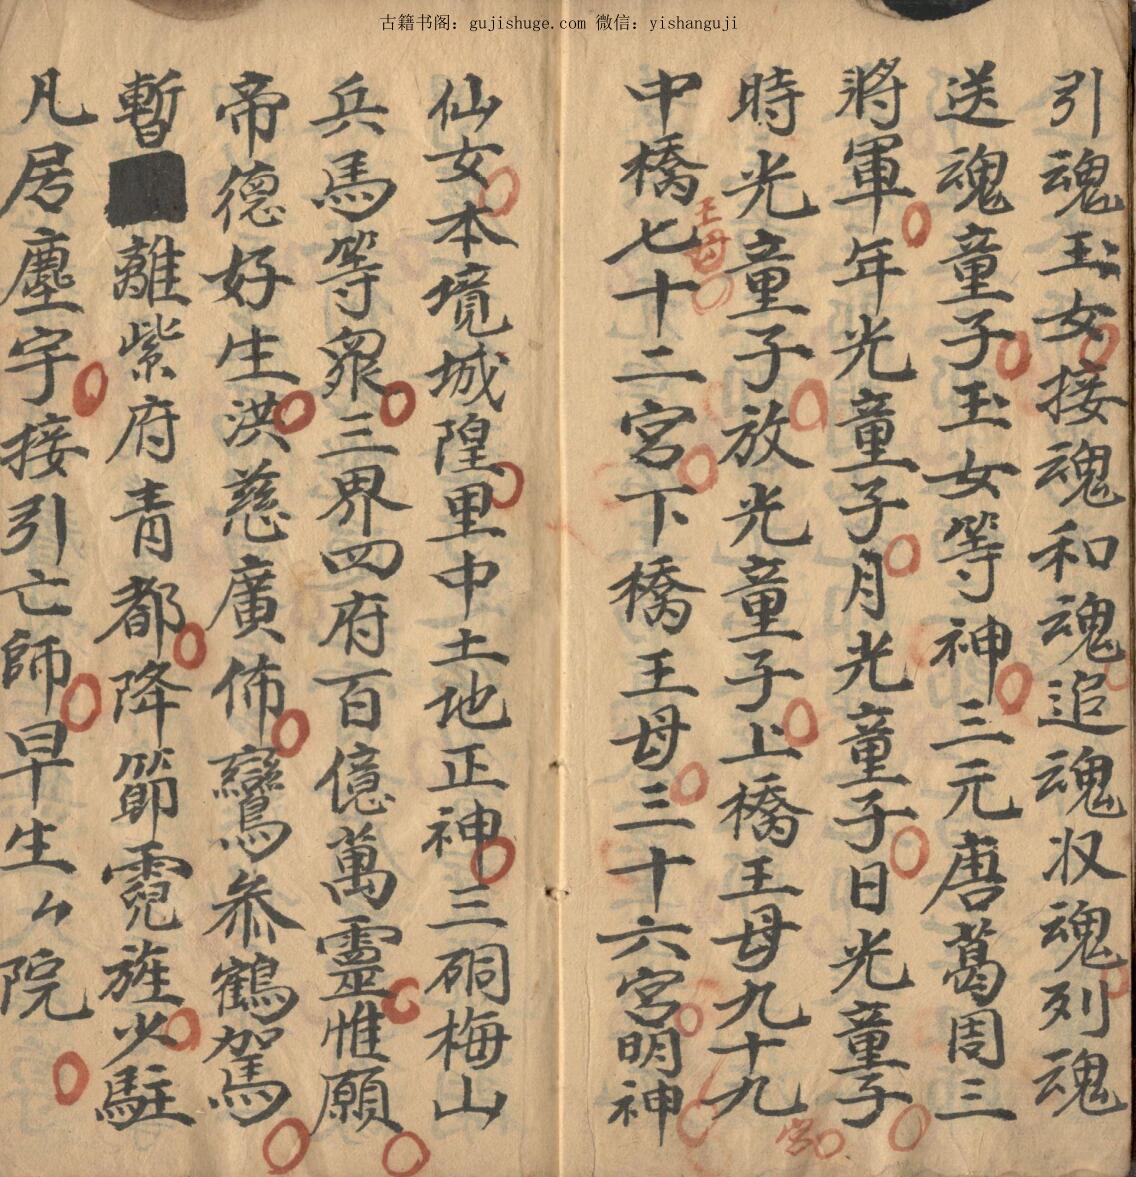 古籍书阁：gujishuge.com 微信：yishanguji
引魂玉女接魂和魂追魂収魂列魂
送魂童子玉女等神三元唐葛周三
將軍年光童子月光童子日光童子
時光童子放光童子上橋王母九十九
宮
中橋七十二宮下橋王母三十六宮明神
王母
仙女本境城隍里中土地正神三硐梅山
兵馬等眾三界四府百億萬靈惟願
帝德好生洪慈廣佈鸞參鶴駕
暫離紫府青都降節霓旌少駐
凡居塵宇接引亡師早生々院